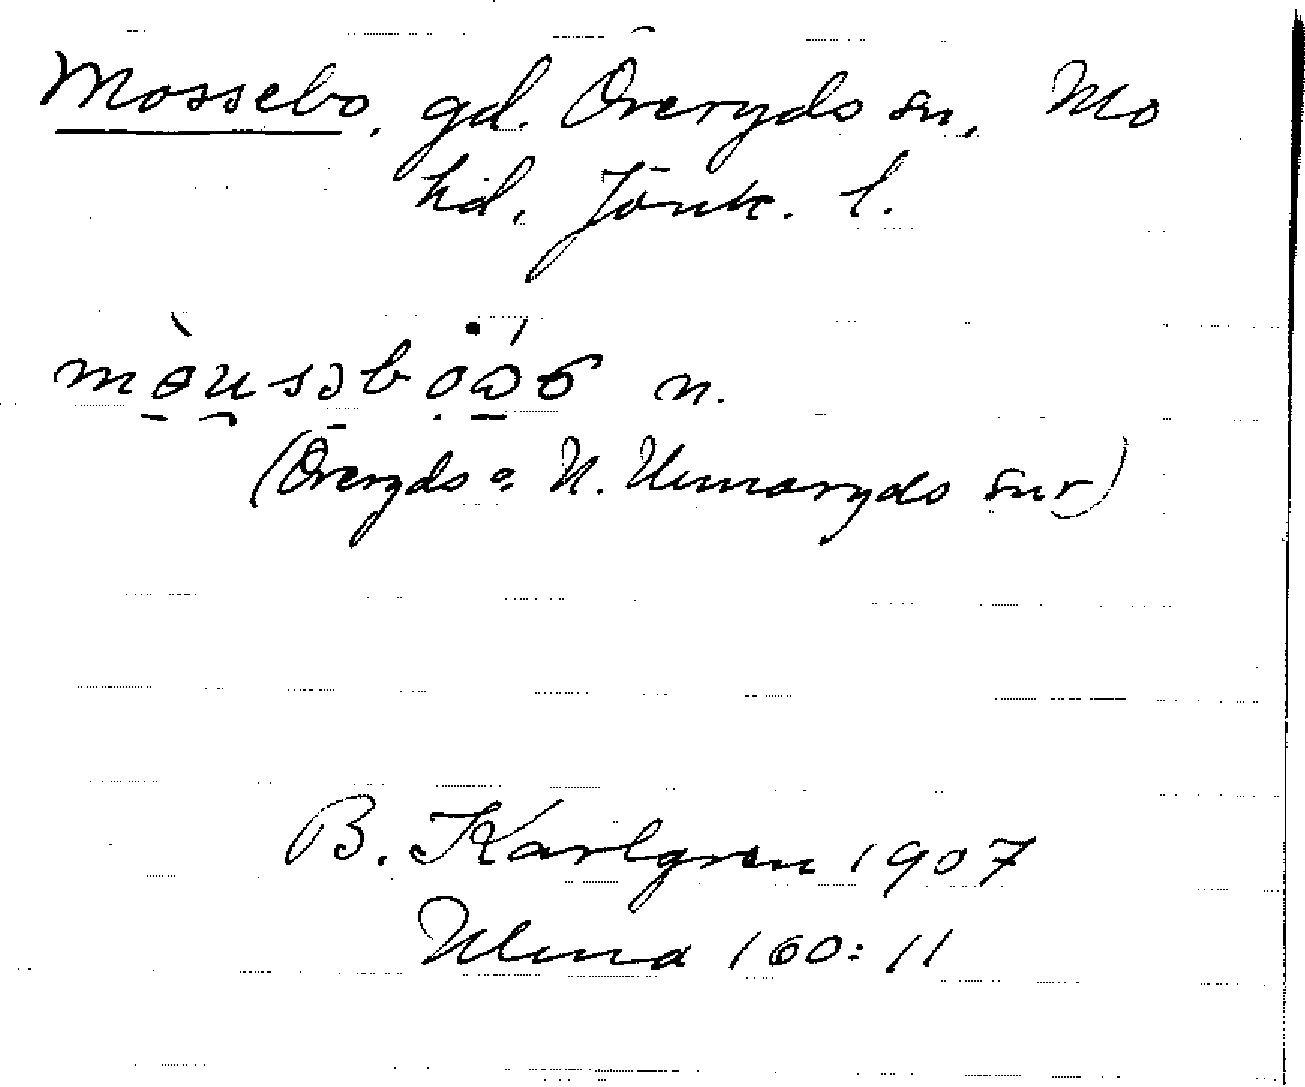 Mossebo, gd. Överyds sn, Mo
hd, Jönk. l.
n.
(Överyds o. N. Unnaryds snr)
B. Karlgren 1907
Ulma 160:11